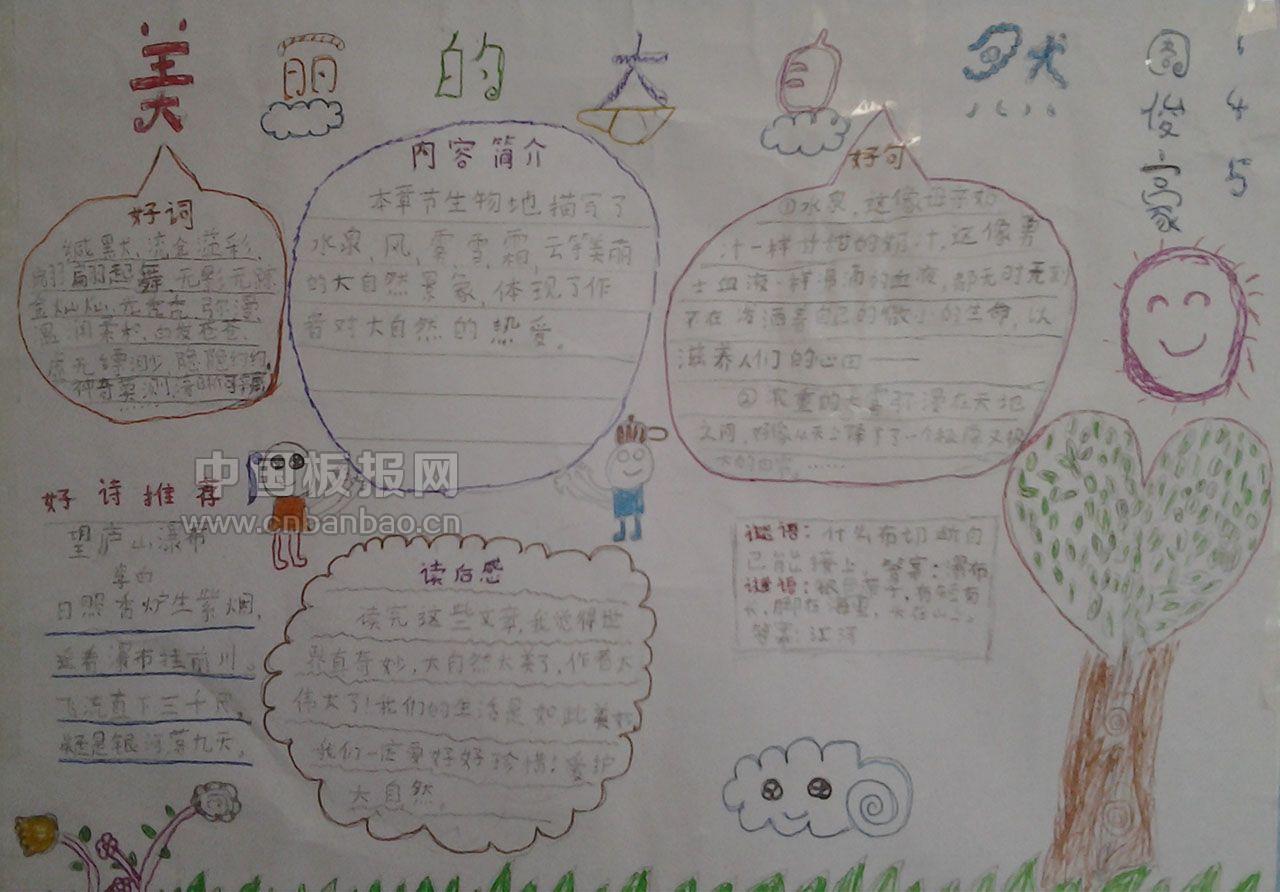 美丽的大自然
周俊豪
145
好词
缄默、流金溢彩、
翩翩起舞、无影无踪
金灿灿、亮壳壳、弥漫、
温润柔和、白发苍苍、
虚无缥渺、隐隐约约、
神奇莫测、清晰可
……
内容简介
本章节生物地描写了
水泉、风、雾、雪、霜、云等美丽
的大自然景象，体现了作
者对大自然的热爱。
好句
①水泉，这像母亲如
汁一样甘甜的奶汁，这像勇
士血液一样滑滴的血液，都无时无刻
不在溶洒着自己的微小的生命，以
滋养人们的心田——
②浓重的大雾弥漫在天地
之间，好像从天上降下了一个极厚又极
大的白帘。……
好诗推荐
望庐山瀑布
李白
日照香炉生紫烟，
遥看瀑布挂前川。
飞流直下三千尺，
疑是银河落九天。
中国板报网
www.cnbanbao.cn
读后感
读完这些文章，我觉得世
界真奇妙，大自然太美了，作者太
伟大了！我们的生活是如此美好
我们一定要好好珍惜！爱护
大自然。
谜语：什么布切断自
己能接上。答案：瀑布
谜语：根
长，脚在海里，头在山上。
答案：江河